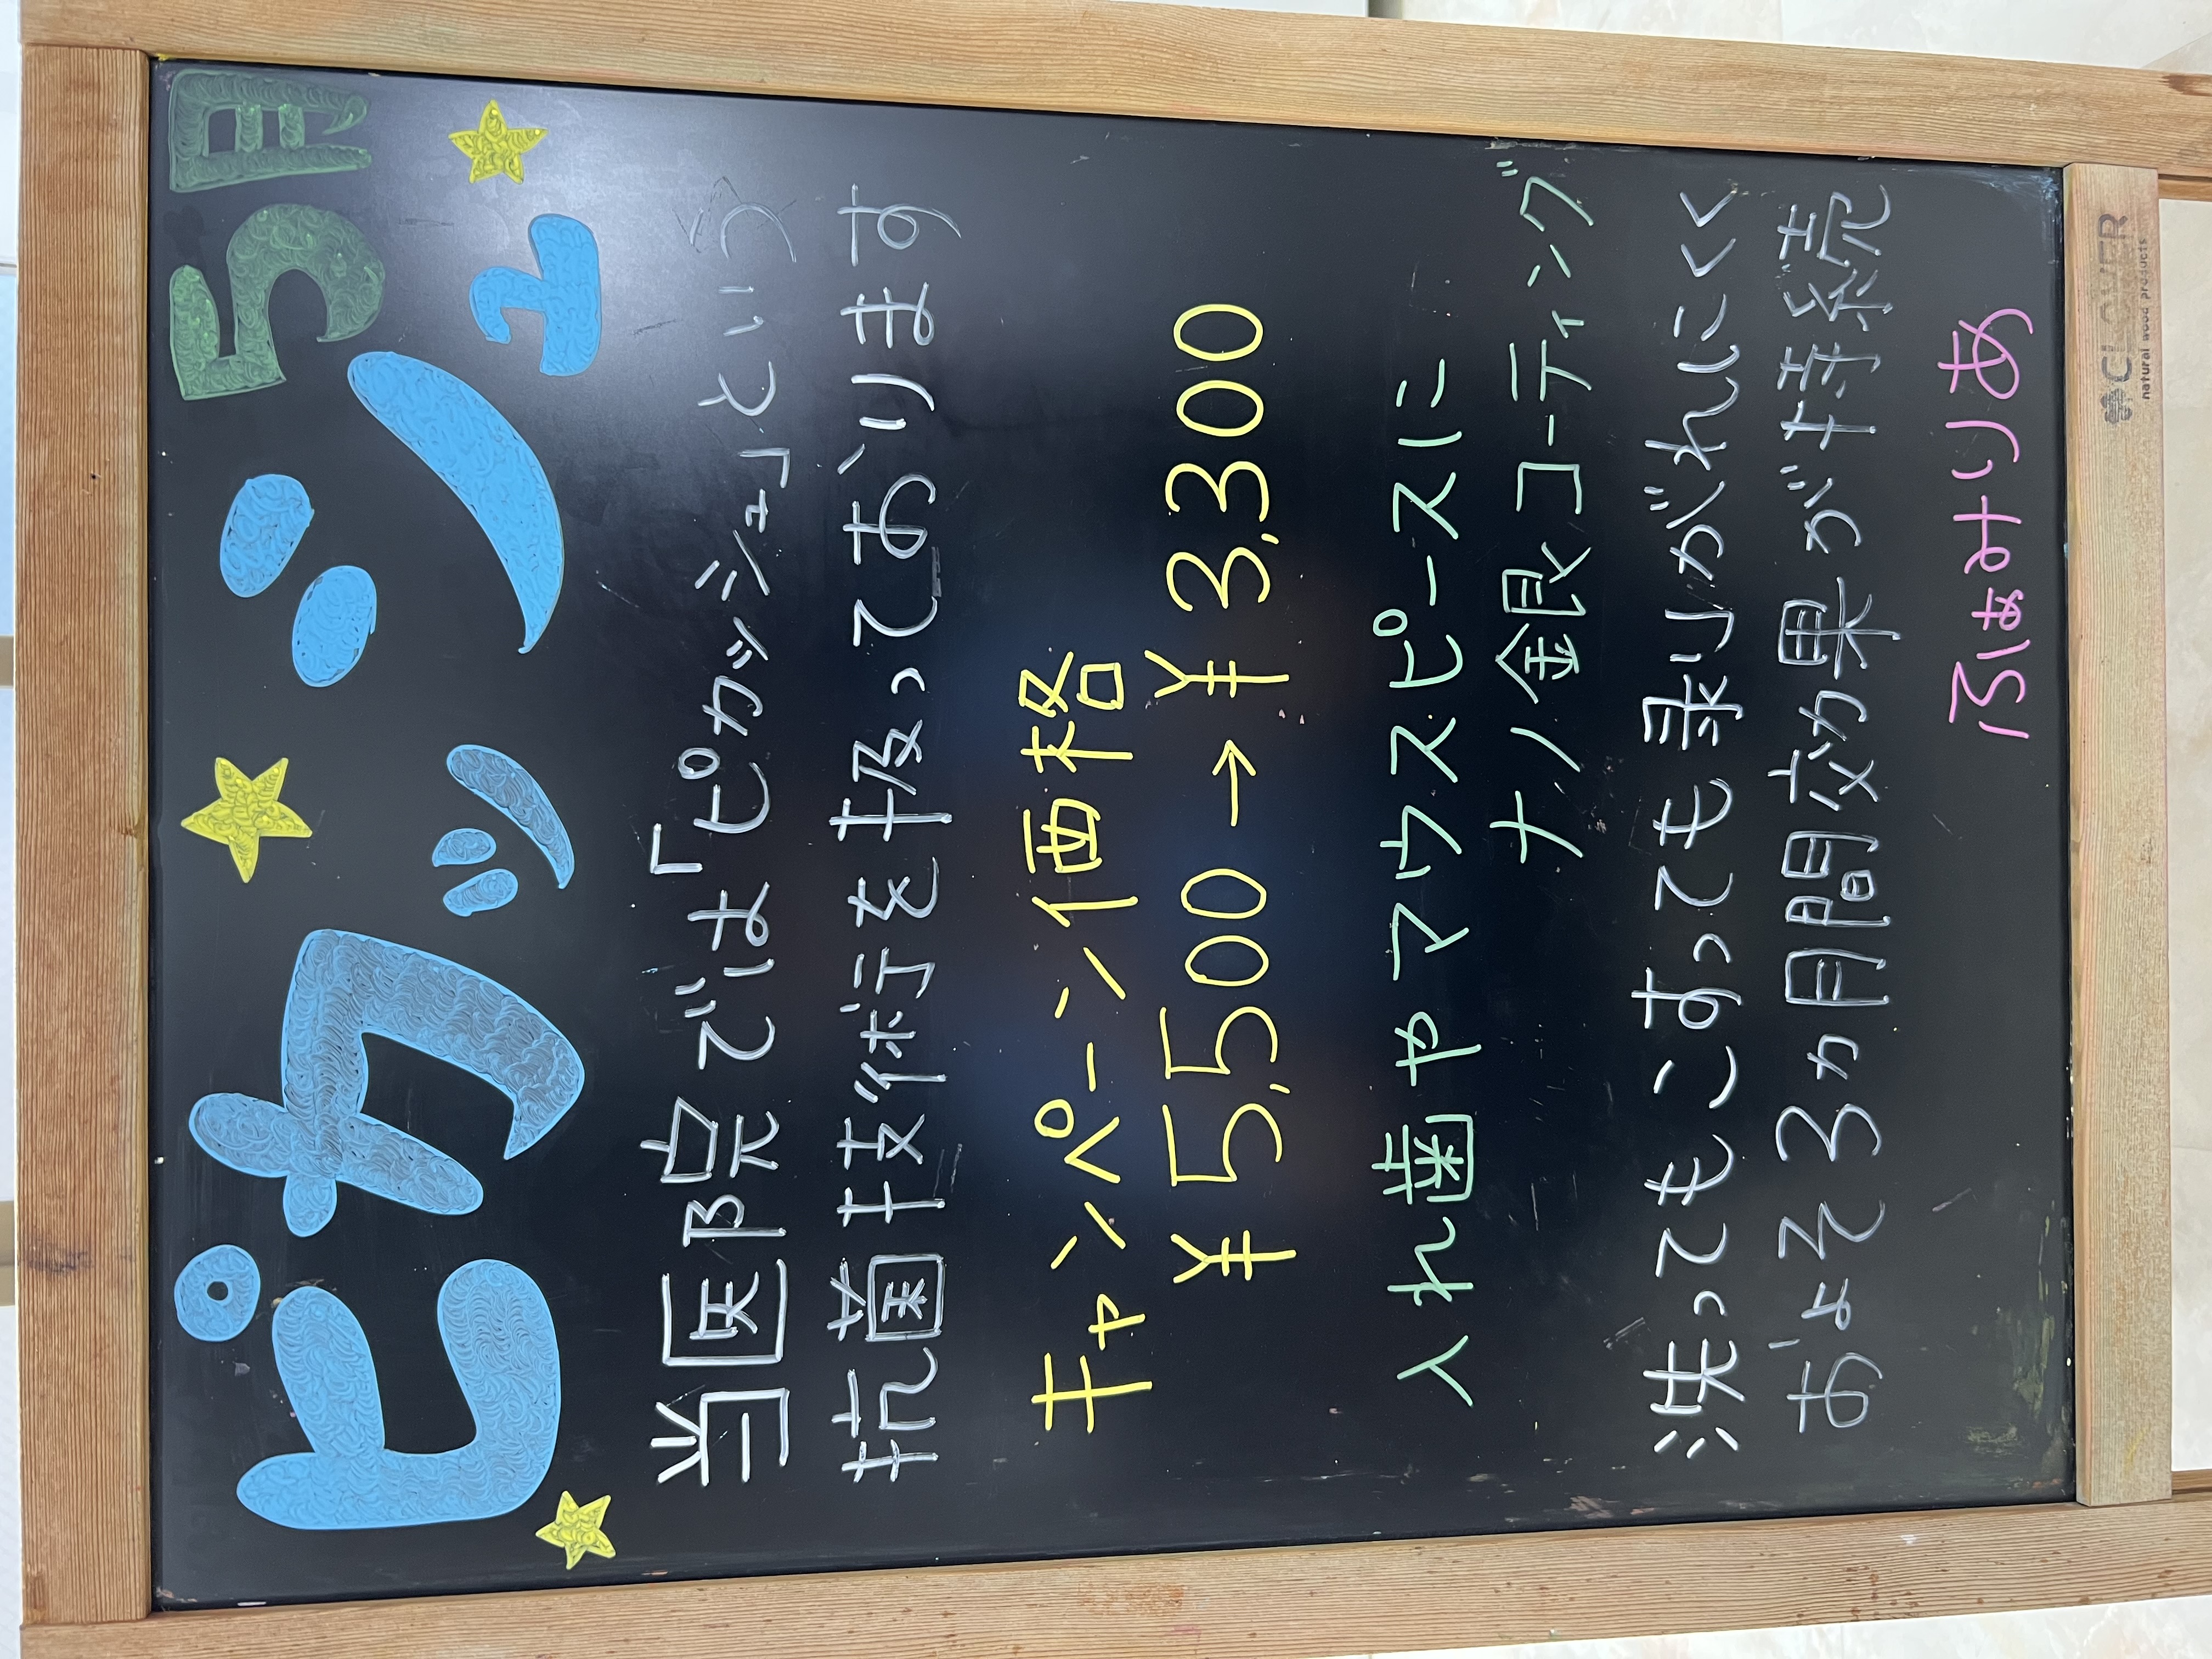 5月
ピカッシュ
当医院では「ピカッシュ」という
抗菌技術を扱っております
キャンペーン価格
¥5,500→¥3,300
入れ歯やマウスピースに
ナノ銀コーティング
洗ってもこすっても剥がれにくく
およそ3ヵ月間効果が持続
ふぁみりあ
CLOVER
natural wood products